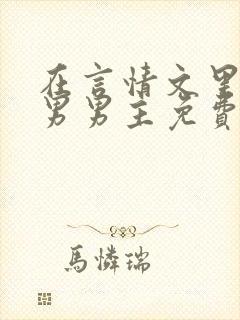 在言情文里
男男主免費
馬憐瑞